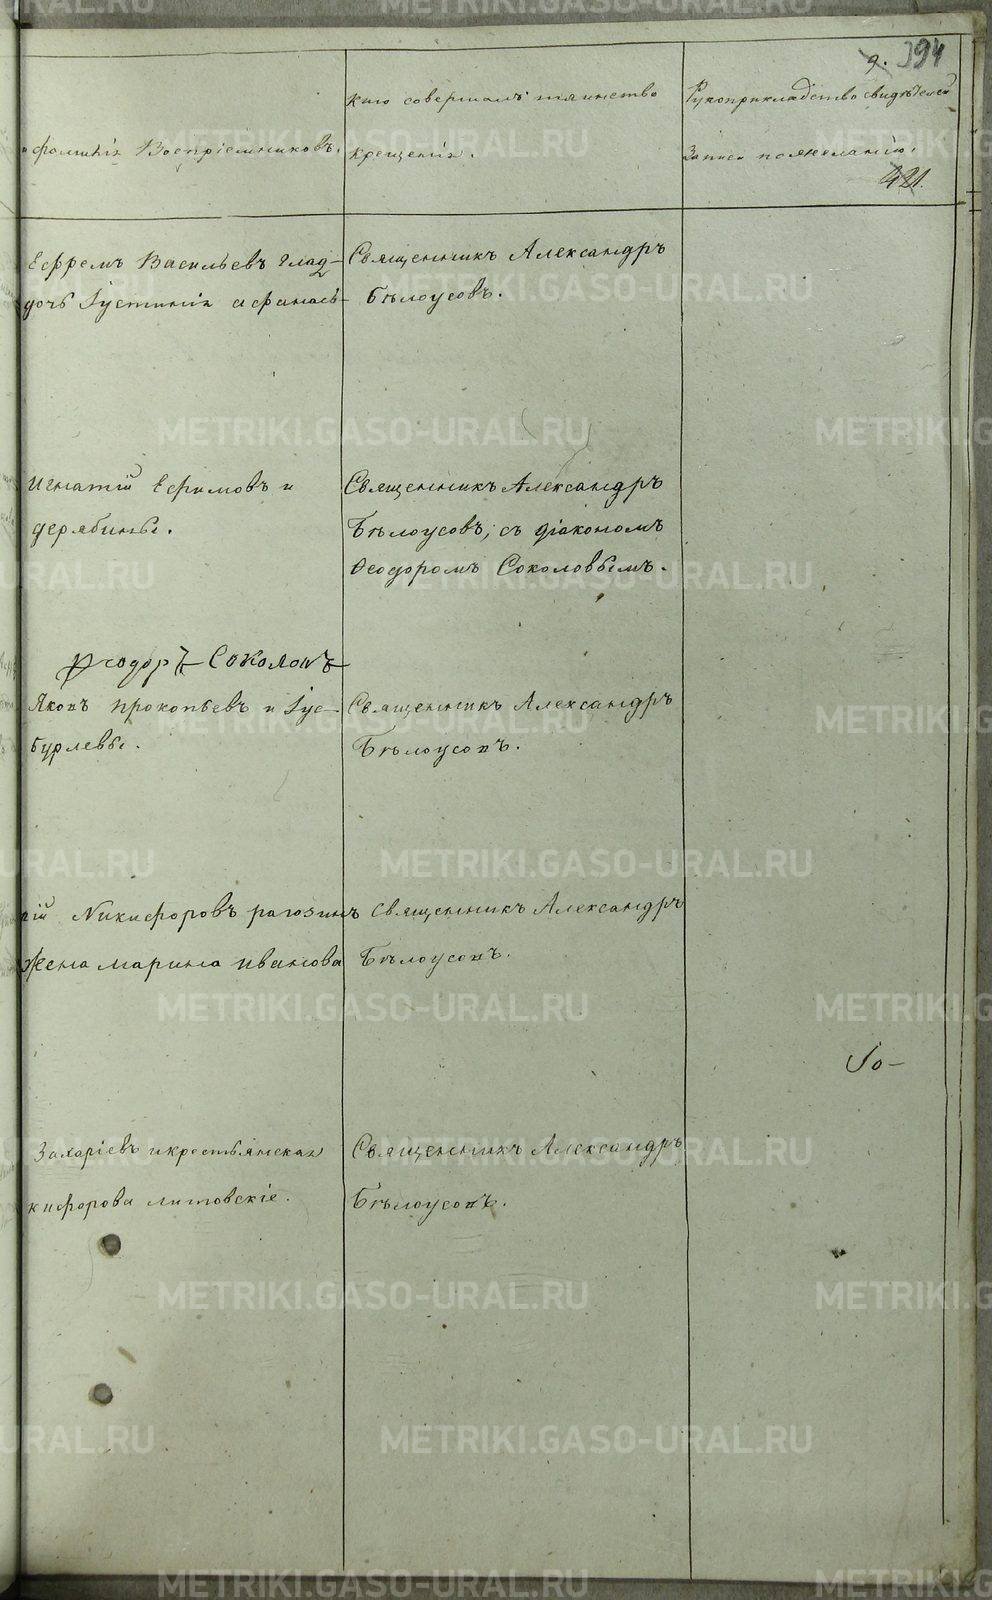 9. 394
и фамилія Воспріемниковъ.
Кто совершалъ таинство
крещенія.
Рукоприкладство свидѣтелей
записи по желанію.
421.
Ефремъ Васильевъ Глад-
дочь Іустинія Афанась-
Священникъ Александръ
Бѣлоусовъ.
Игнатій Ефимовъ и
Дерябины.
Священникъ Александръ
Бѣлоусовъ, съ діакономъ
Ѳеодоромъ Соколовымъ.
Ѳеодоръ Соколовъ
Яковъ Прокопьевъ и Іус-
Бурлевы.
Священникъ Александръ
Бѣлоусовъ.
тій Никифоровъ Рагозинъ
жена Марина Иванова
Священникъ Александръ
Бѣлоусовъ.
По-
Захаріевъ и крестьянская
кифорова Литовскіе.
Священникъ Александръ
Бѣлоусовъ.
METRIKI.GASO-URAL.RU